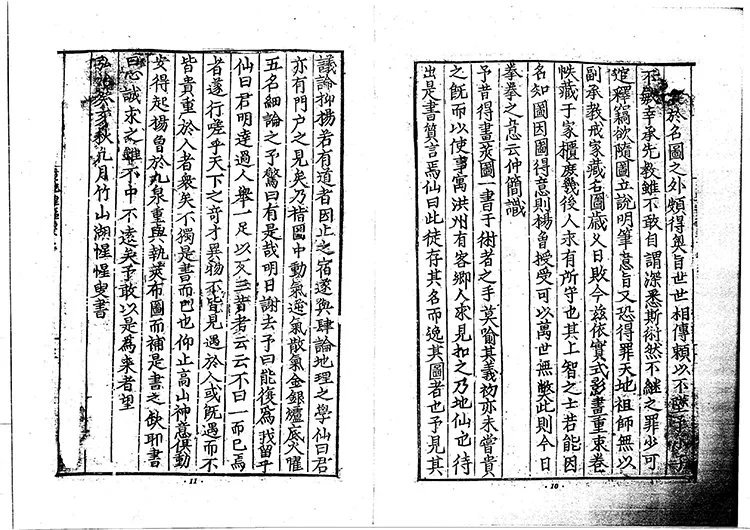 於名圖之外頗得奧旨世世相傳賴以不
不敏幸承先教雖不敢自謂深悉斯術然不繼之罪少可
逭釋竊欲隨圖立說明筆意旨又恐得罪天地祖師無以
副承教戒家藏右圖歲乂日敗今兹依實式影畫重束卷
帙藏于家櫃庶幾後人永有所守也其上智之士若能因
名知圖因圖得意則楊曾授受可以萬世無弊此則今日
拳拳之意云仲簡識
予昔得書莢圖一書于術者之手莫喻其義初亦未嘗貴
之旣而以使事寓洪州有客鄉人求見扣之乃地仙也待
出是書質言焉仙曰此徒存其名而逸其圖者也予見其
議論抑揚若有道者因止之宿遂與肆論地理之學仙曰君
亦有門户之見矣乃楷圖中動氣逆氣散氣金銀爐底火曜
五名細論之予驚曰有是哉明日謝去予曰能復為我留乎
仙曰君明達過人舉一足以反三者者云云不日一而巳焉
者遂行嗟乎天下之奇才異物不皆見遇於人或旣遇而不
皆貴重於人者衆矣不獨是書而巴也仰止高山神意俱動
安得起楊曾於九泉重與執莢布圖而補是書之缺耶書
曰心誠求之雖不中不遠矣予敢以是為来者望
弘治癸亥秋九月竹山湖惺惺叟書
·10·
·11·